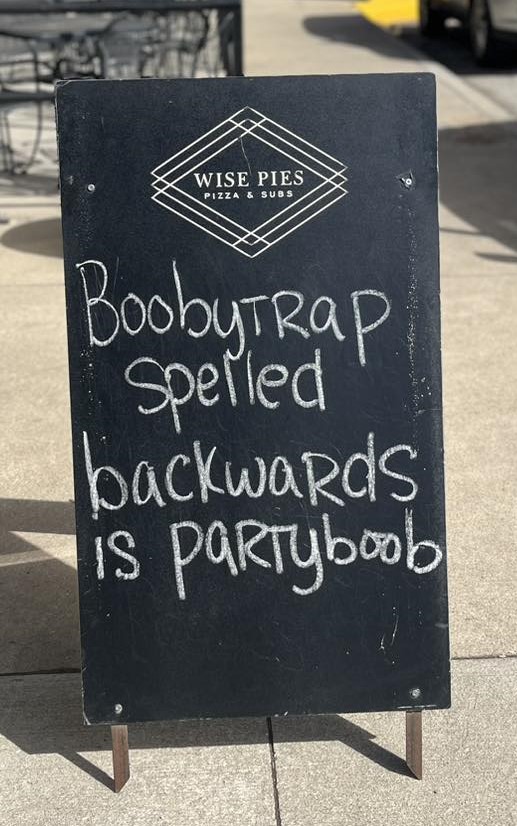 WISE PIES
PIZZA & SUBS
BoobyTRap
spelled
backwards
is partyboob